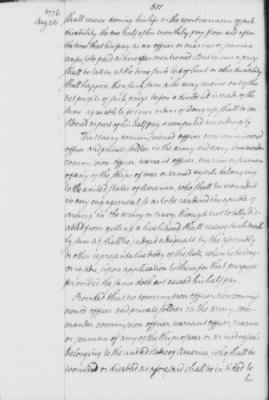 811
1776
Aug 26
shall receive during his life or the continuance of such
disability the one half of his monthly pay from and after
the time that his pay as an officer or marine or seaman
ceases to be paid as herein before mentioned But in case a prize
shall be taken at the time such loss of limb or other disability
shall happen, then such sum as he may receive out of the
net profits of such prize before a dividend is made of the
same agreeable to former orders of Congress shall be con
sidered as part of his half pay & computed accordingly
That every commissioned officer, non commissioned
officer and private soldier in the army and every commander
commission officer, warrant officer, marine or seaman
of any of the ships of war or armed vessels belonging
to the united states of America, who shall be wounded
in any engagement so as to be rendered incapable of
serving in the army or navy, though not totally dis
abled from getting a livelihood shall receive such month
ly sum as shall be judged adequate by the assembly
or other representative body of the state where he belongs
or resides, upon application to them for that purpose
provided the same doth not exceed his half pay.
Provided that no commission officer, non commis
sioned officer and private soldier in the army, com
mander, commission officer, warrant officer, marine
or seaman of any of the ships of war or armed vessels
belonging to the united states of America, who shall be
wounded or disabled as aforesaid shall be intitled to